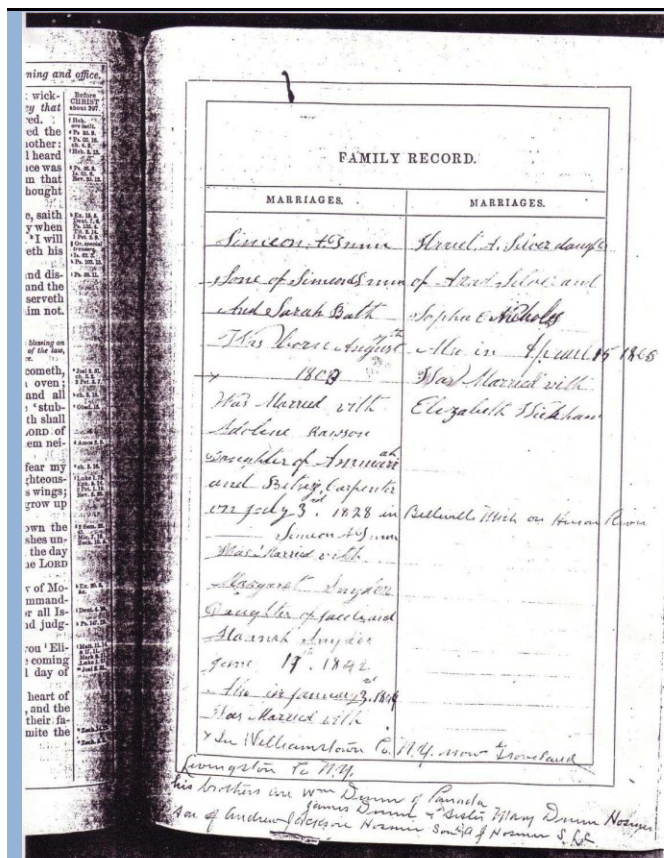 ning and office.
wick-
y that
red.
ed the
nother:
l heard
nce was
m that
hought
e, saith
y when
"I will
eth his
nd dis-
and the
serveth
im not.
blessing on
of the law,
cometh,
oven;
and all
'stub-
th shall
LORD of
em nei-
fear my
ghteous-
s wings;
grow up
own the
shes un-
the day
he LORD
v of Mo-
mmand-
or all Is-
nd judg-
you 'Eli-
e coming
l day of
heart of
, and the
their fa-
mite the
Before
CHRIST
about 397.
FAMILY RECORD.
MARRIAGES.
Simeon A Dunn
Sone of Simeon Dunn
And Sarah Bath
Was borne August
Was Married with
Adoline Rawson
Daughter of
and Betsy Carpenter
on July 3 1828 in Bellville Mich on Huron River
Simeon A Dunn
Was Married with
Margaret Snyder
Daughter of Jacob and
Hannah Snyder
June 19. 1842
Also in January 3
Was Married with
MARRIAGES.
A. Silver daugh
of Arad Silver and
Sophia Nicholes
Also in 15
Was Married with
Elizabeth Wickham
x In Williamstown Co. N.Y. now Groveland
Livingston Co N.Y.
his brothers are Wm Dunn of Canada
James Dunn & Sister Mary Dunn Hosmer
son of Andrew Jackson Hosmer